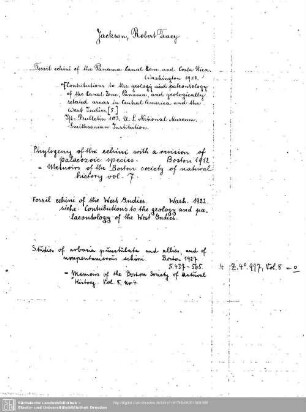 Jackson, Robert Tracy
Fossil echini of the Panama Canal Zone and Costa Rica.
Washington 1918.
= Contributions to the geology and paleontology
of the Canal Zone, Panama, and geologically
related areas in Central America and the
West Indies [5]
Bulletin 103, U. S. National Museum.
Smithsonian Institution.
Phylogeny of the echini with a revision of
palaeozoic species. Boston 1912
= Memoirs of the Boston society of natural
history vol. 7.
Fossil echini of the West Indies. Wash. 1922.
siehe: Contributions to the geology and pa-
laeontology of the West Indies.
Studies of arbacia punctulata and allies, and of
nonpentamerous echini. Boston 1927
S. 437-565.
= Memoirs of the Boston Society of natural
History. Vol. 8, No 4
Z. 4° 997, Vol. 8